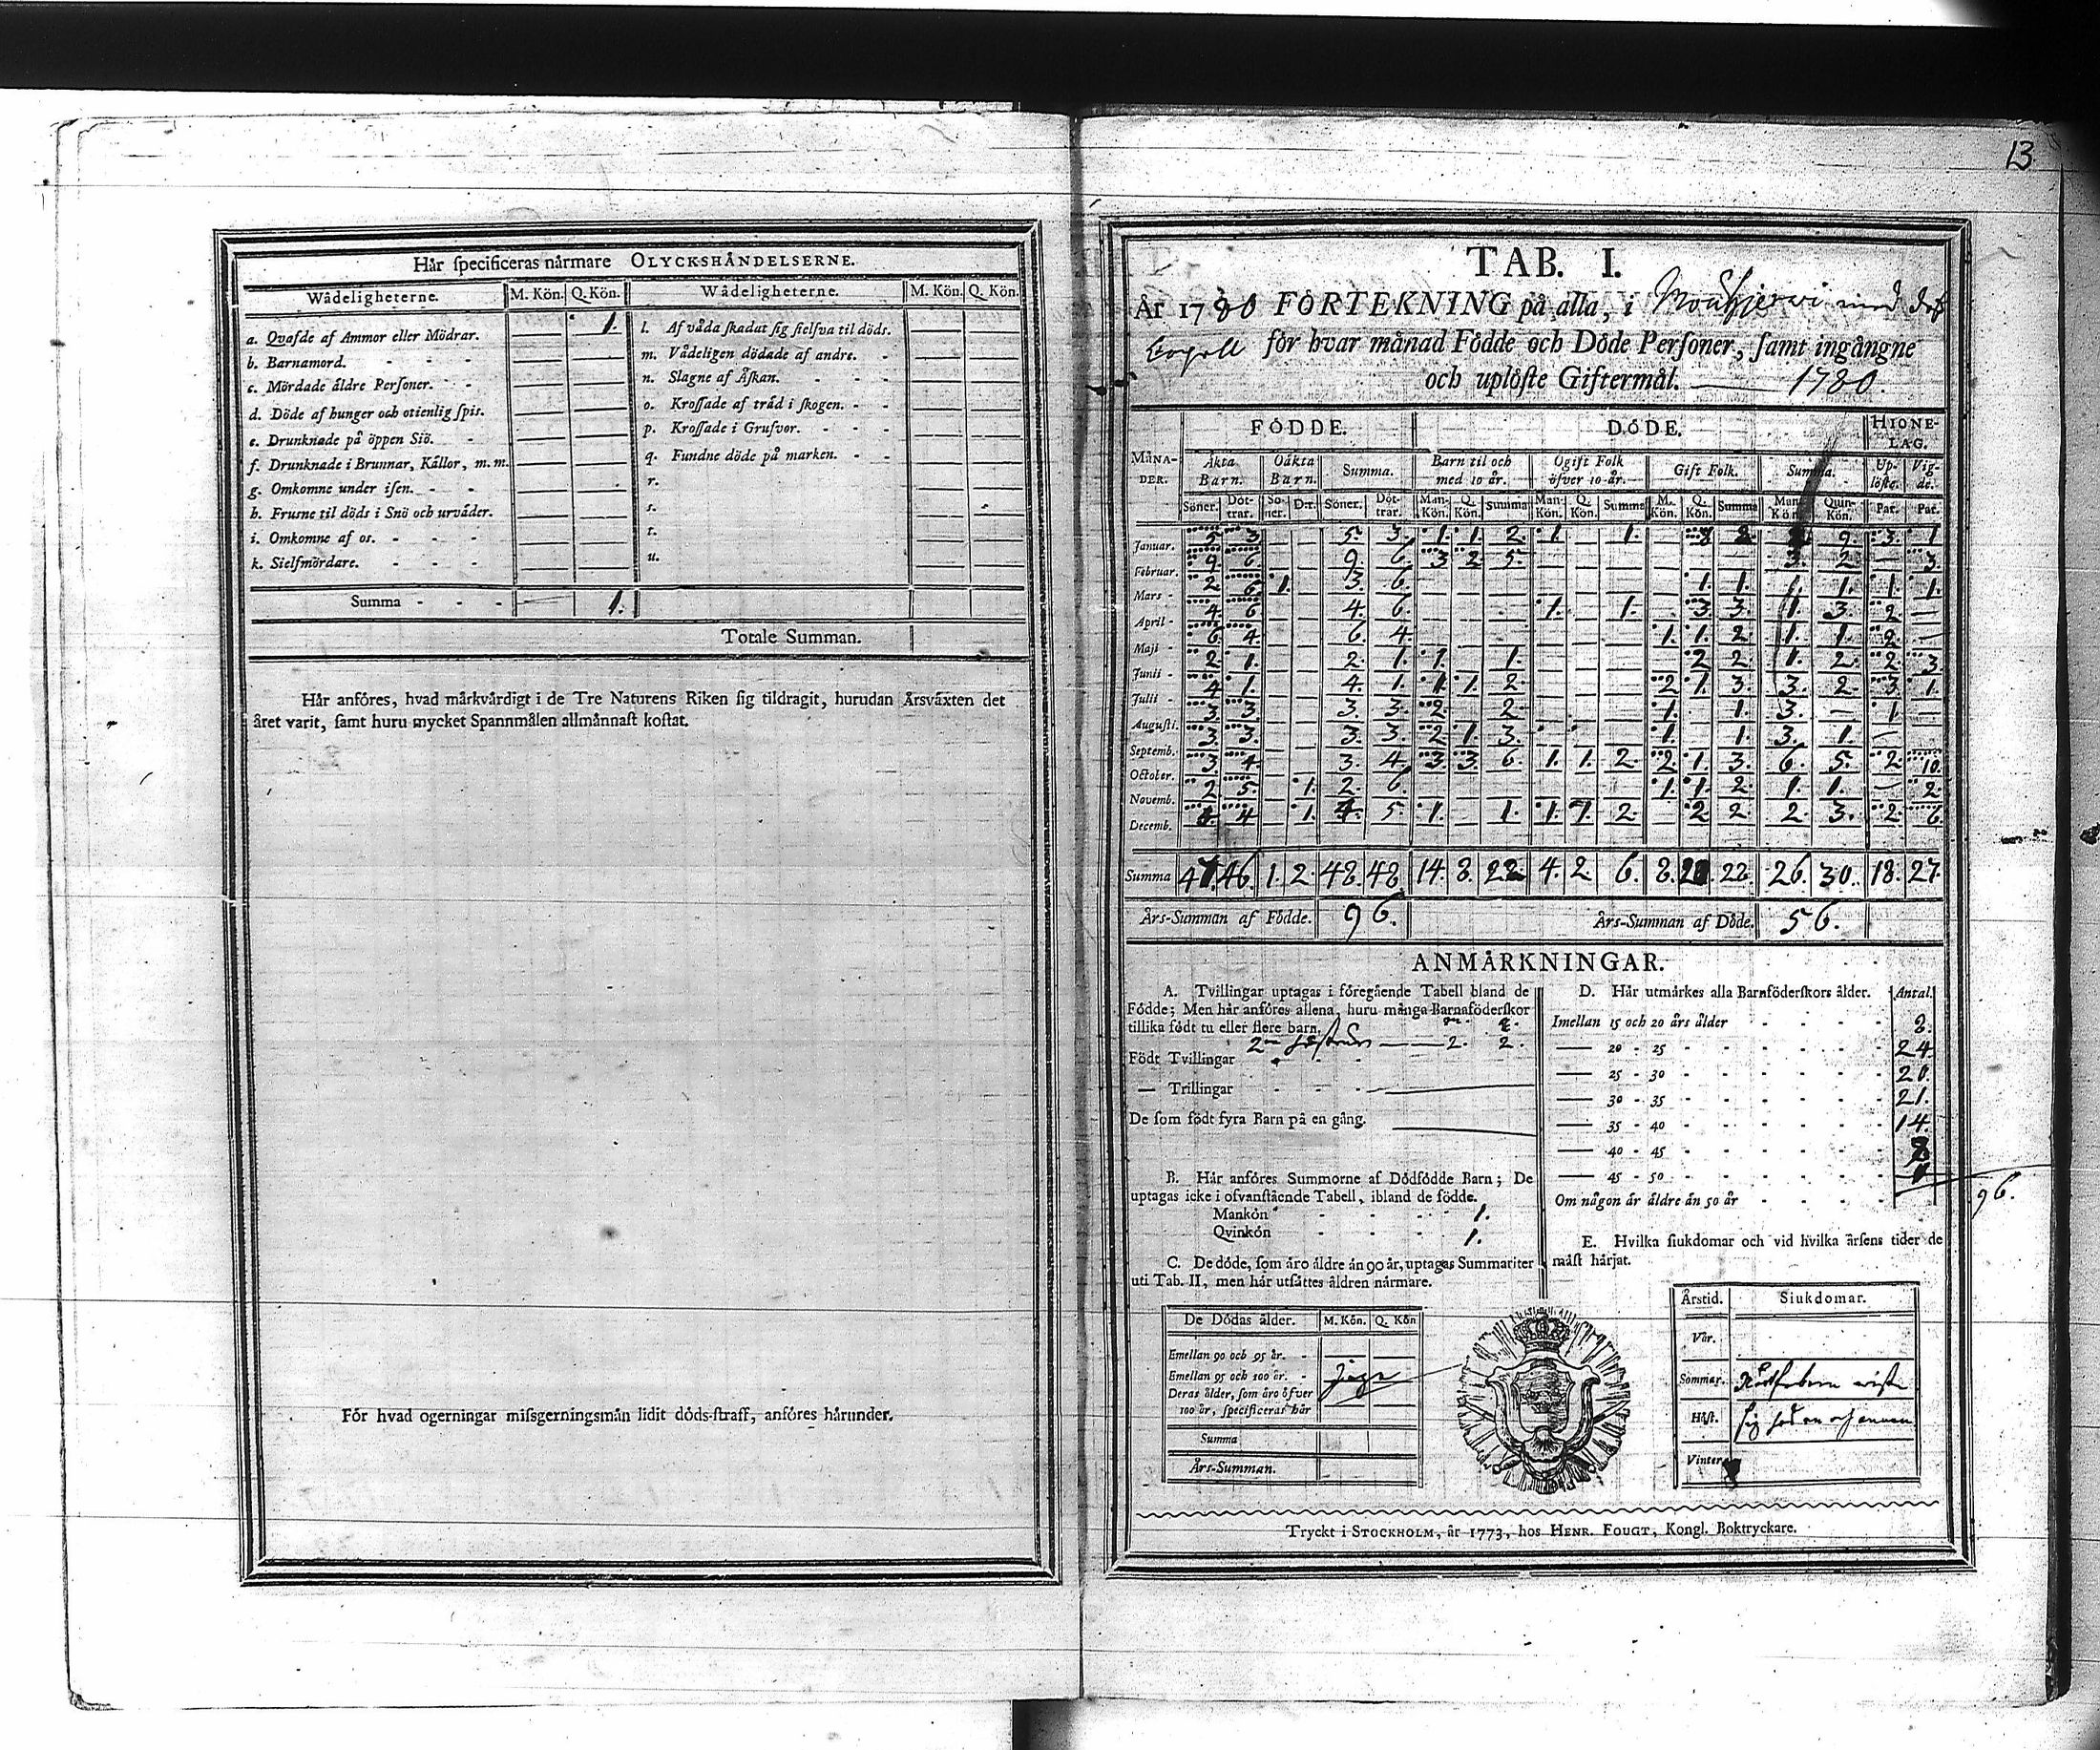 13
Hår specificeras nårmare OLYCKSHÅNDELSERNE.
Wådeligheterne. M. Kön. Q. Kön. Wådeligheterne. M. Kön. Q. Kön.
a. Qvafde af Ammor eller Mödrar. — 1. l. Af våda skadat sig sielfva til döds. — —
b. Barnamord. — — m. Vådeligen dödade af andre. — —
c. Mördade åldre Personer. — — n. Slagne af Åskan. — —
d. Döde af hunger och otienlig spis. — — o. Krossade af tråd i skogen. — —
e. Drunknade på öppen Siö. — — p. Krossade i Grufvor. — —
f. Drunknade i Brunnar, Kållor, m. m. — — q. Fundne döde på marken. — —
g. Omkomne under isen. — — r. — —
h. Frusne til döds i Snö och urvåder. — — s. — —
i. Omkomne af os. — — t. — —
k. Sielfmördare. — — u. — —
Summa — 1.
Totale Summan.
Hår anföres, hvad mårkvårdigt i de Tre Naturens Riken sig tildragit, hurudan Årsvåxten det
året varit, samt huru mycket Spannmålen allmånnast kostat.
För hvad ogerningar missgerningsmån lidit döds-straff, anföres hårunder.
TAB. I.
År 1780 FÖRTEKNING på alla, i med
för hvar månad Födde och Döde Personer, samt ingångne
och uplöste Giftermål. — 1780.
FÖDDE. DÖDE. HIONELAG.
MÅNADER. Åkta Barn. Oåkta Barn. Summa. Barn til och med 10 år. Ogift Folk öfver 10 år. Gift Folk. Summa. Uplöste. Vigde.
Söner. Döttrar. Söner. D:r. Söner. Döttrar. Man-Kön. Q. Kön. Summa Man-Kön. Q. Kön. Summa M. Kön. Q. Kön. Summa Man-Kön. Quin-Kön. Par. Par.
Januar. 5 3 — — 5 3. 1. 1. 2. 1. — 1. — 3. 1
Februar. 9 6 — — 9. 6. 3 2 5. — — — — — — 3. 2 — 3.
Mars 2 6. 1. — 3. 6. — — — — — — — 1. 1. 1. 1. 1.
April 4 6. — — 4. 6. 1. — 1. — 3 3. 1. 3. 2 —
Maji 6 4. — — 6. 4. — — — — — — 1. 1. 2. 1. 1. 2 —
Junii 2. 1. — — 2. 1. 1. — 1. — — — — 2 2. 1. 2. 2 3
Julii 4 1. — — 4. 1. 1 1. 2 — — — 2 1. 3. 3. 2. 3. 1.
Augusti. 3 3. — — 3. 3. 2. — 2. — — — 1. — 1. 3. — 1. —
Septemb. 3. 3. — — 3. 3. 2 1. 3. — — — 1. — 1 3. 1. — —
October. 3. 4. — — 3. 4. 3 3. 6. 1. 1. 2. 2 1. 3. 6. 5. 2 10.
Novemb. 2. 5. — 1. 2. 6. — — — — — — 1. 1. 2. 1. 1. — 2.
Decemb. 4. 4 — 1. 4. 5. 1. — 1. 1. 1. 2. — 2 2. 2. 3. 2. 6.
Summa 47. 46. 1. 2. 48. 48. 14. 8. 22. 4. 2 6. 8. 22. 26. 30. 18. 27.
Års-Summan af Födde. 96. Års-Summan af Döde. 56.
ANMÅRKNINGAR.
A. Tvillingar uptagas i föregående Tabell bland de
Födde; Men hår anföres allena, huru många Barnaföderskor
tillika födt tu eller flere barn.
2 — 2. 2.
Födt Tvillingar
— Trillingar
De som födt fyra Barn på en gång.
B. Hår anföres Summorne af Dödfödde Barn; De
uptagas icke i ofvanstående Tabell, ibland de födde.
Mankön 1.
Qvinkön 1.
C. De döde, som åro åldre ån 90 år, uptagas Summariter
uti Tab. II, men hår utsåttes åldren nårmare.
De Dödas ålder. M. Kön. Q. Kön
Emellan 90 och 95 år.
Emellan 95 och 100 år.
Deras ålder, som åro öfver
100 år, specificeras hår
Summa
Års-Summan.
D. Hår utmårkes alla Barnföderskors ålder. Antal.
Imellan 15 och 20 års ålder 8.
— 20 - 25 24
— 25 - 30 20.
— 30 - 35 21.
— 35 - 40 14
— 40 - 45 8
— 45 - 50 1
Om någon år åldre ån 50 år
96.
E. Hvilka siukdomar och vid hvilka årsens tider de
måst hårjat.
Årstid. Siukdomar.
Vår.
Sommar.
Höst.
Vinter
Tryckt i STOCKHOLM, år 1773, hos HENR. FOUGT, Kongl. Boktryckare.